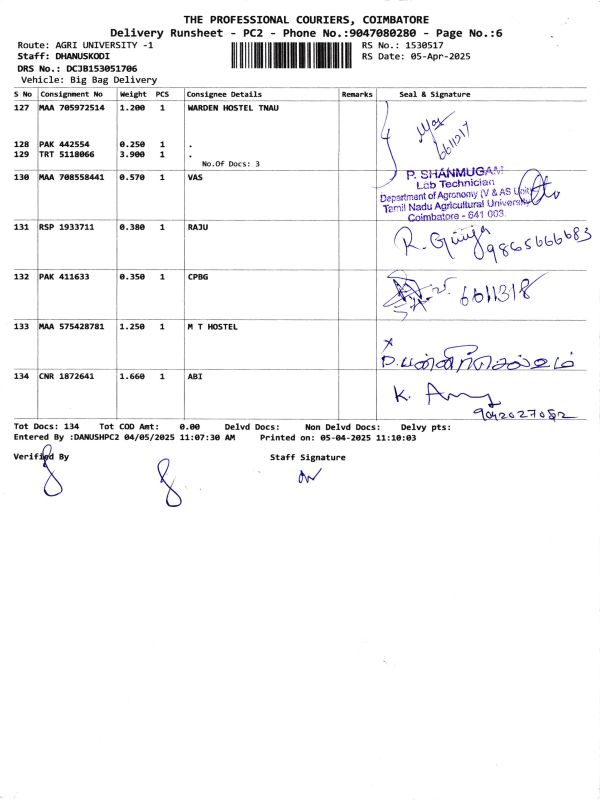 THE PROFESSIONAL COURIERS, COIMBATORE
Delivery Runsheet - PC2 - Phone No.:9047080280 - Page No.:6
Route: AGRI UNIVERSITY -1
RS No.: 1530517
Staff: DHANUSKODI
RS Date: 05-Apr-2025
DRS No.: DCJB153051706
Vehicle: Big Bag Delivery
S No Consignment No Weight PCS Consignee Details Remarks Seal & Signature
127 MAA 705972514 1.200 1 WARDEN HOSTEL TNAU
6611217
128 PAK 442554 0.250 1 .
129 TRT 5118066 3.900 1 .
No.Of Docs: 3
130 MAA 708558441 0.570 1 VAS
P. SHANMUGAM
Lab Technician
Department of Agronomy (V & AS Unit)
Tamil Nadu Agricultural University
Coimbatore - 641 003.
131 RSP 1933711 0.380 1 RAJU
R. Girija
9865666683
132 PAK 411633 0.350 1 CPBG
6611318
133 MAA 575428781 1.250 1 M T HOSTEL
x
P. பன்னீர்செல்வம்
134 CNR 1872641 1.660 1 ABI
K.
9042027082
Tot Docs: 134 Tot COD Amt: 0.00 Delvd Docs: Non Delvd Docs: Delvy pts:
Entered By :DANUSHPC2 04/05/2025 11:07:30 AM Printed on: 05-04-2025 11:10:03
Verified By Staff Signature